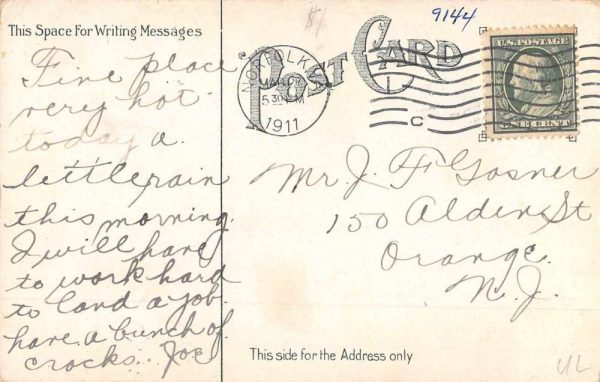 This Space For Writing Messages
9144
POST CARD
NORFOLK, VA
5 30 PM
1911
C
U.S. POSTAGE
ONE CENT
Fine place
very hot
today a
little rain
this morning.
I will have
to work hard
to land a job.
have a bunch of
crocks. Joe
Mr J. F. Gosner
150 Alden St
Orange.
N. J.
This side for the Address only